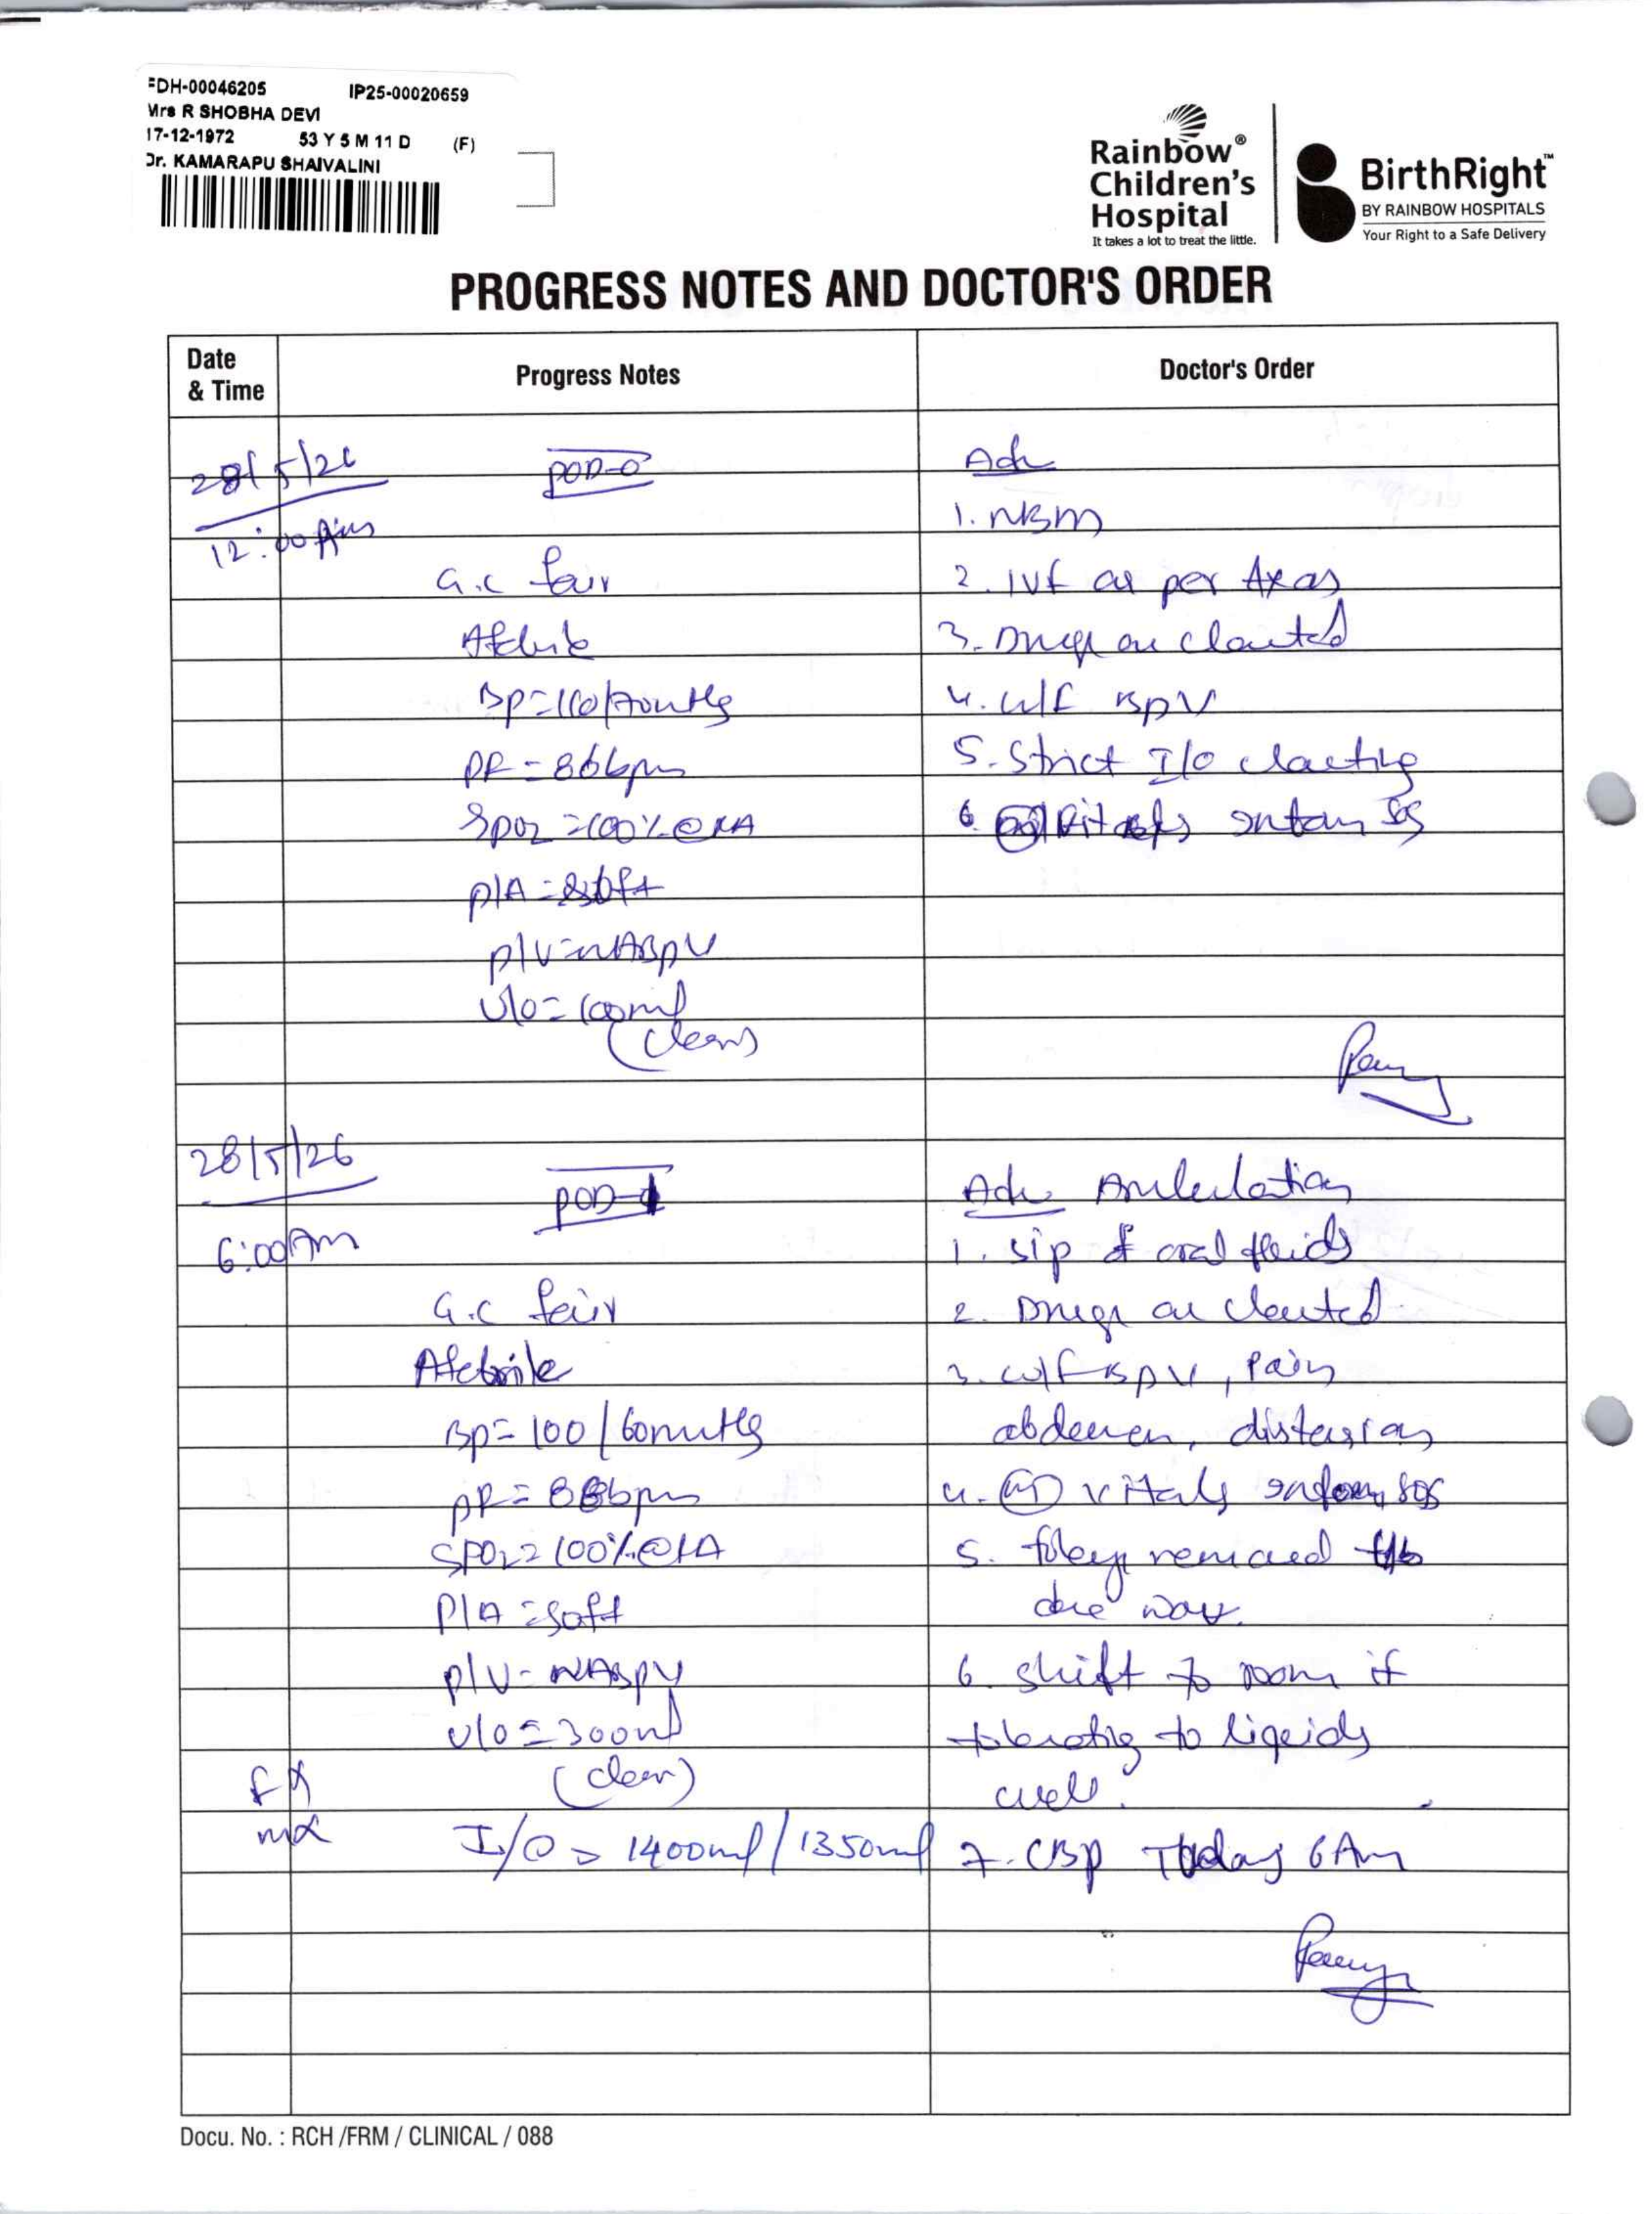 FDH-00046205 IP25-00020659
Mrs R SHOBHA DEVI
17-12-1972 53 Y 5 M 11 D (F)
Dr. KAMARAPU SHAIVALINI
Rainbow®
Children's
Hospital
It takes a lot to treat the little.
BirthRight™
BY RAINBOW HOSPITALS
Your Right to a Safe Delivery
PROGRESS NOTES AND DOCTOR'S ORDER
Date & Time Progress Notes Doctor's Order
28/5/26 POD-0 Adv
12:00 Am 1. NBM
G.C fair 2. IVF as per
Afebrile 3. Drugs as charted
BP=110/70mmHg 4. w/f BPV
PR=86bpm 5. Strict I/O charting
SPO2=100%@RA 6. vitals inform SOS
P/A=soft
P/V=NABPV
U/O=100ml
(clear)
28/5/26 POD-1 Adv Ambulation
6:00Am 1. sip of oral fluids
G.C fair 2. Drugs as charted
Afebrile 3. w/f BPV, Pain
BP=100/60mmHg abdomen, distension
PR=88bpm 4. vitals inform SOS
SPO2=100%@RA 5. foleys removed
P/A=soft
P/V=NABPV 6. shift to room if
U/O=300ml tolerating to liquids
(clear) well.
I/O 1400ml/1350ml 7. CBP Today 6Am
Docu. No. : RCH /FRM / CLINICAL / 088